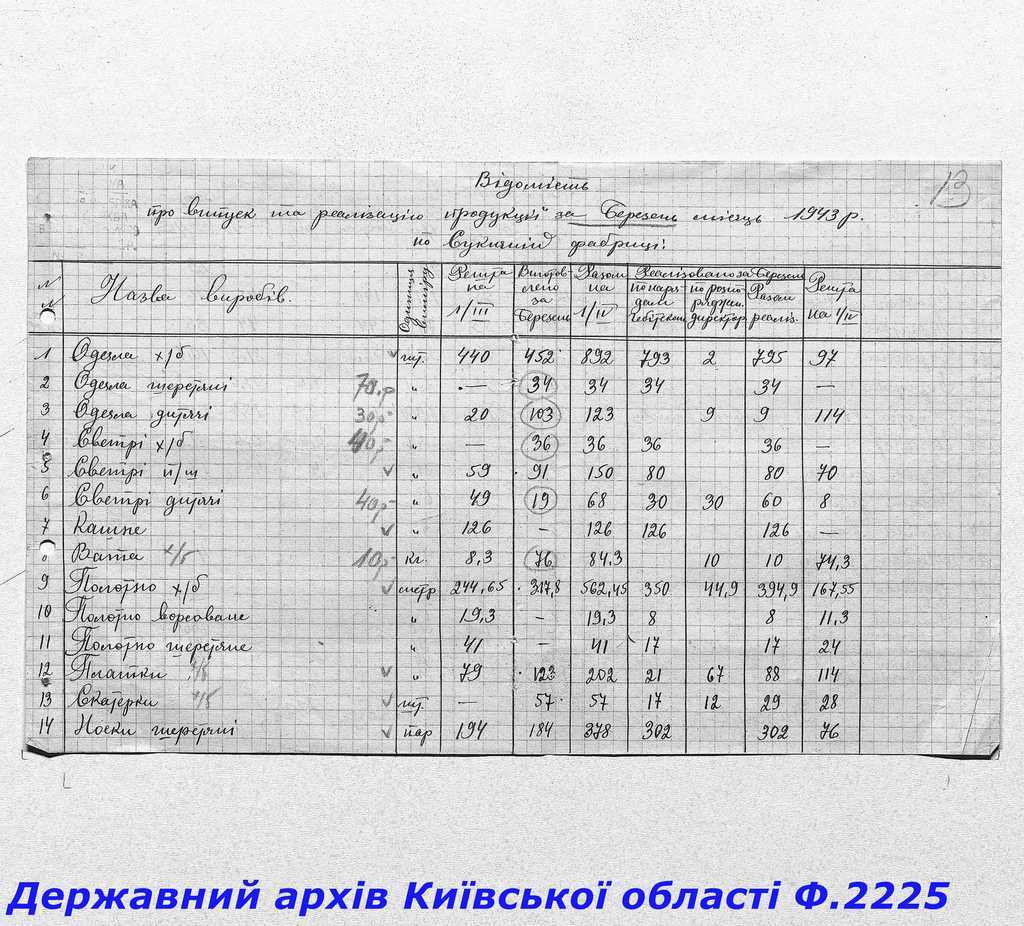 13
Відомість
про випуск та реалізацію продукції за Березень місяць 1943 р.
по Сукичній фабриці:
№№ Назва виробів. Одиниця виміру Решта на 1/III Виготовлено за Березень Разом на 1/IV Реалізовано за Березень Решта на 1/IV
по наря- дам по розпо- ряджен. директор. Разом реаліз.
1 Одеяла х/б шт. 440 452 892 793 2 795 97
2 Одеяла шерстяні 70.р " — 34 34 34 34 —
3 Одеяла дитячі 30р- " 20 103 123 9 9 114
4 Светрі х/б 40р- " — 36 36 36 36 —
5 Светрі п/ш " 59 91 150 80 80 70
6 Светрі дитячі 40р- " 49 19 68 30 30 60 8
7 Кашне " 126 – 126 126 126 —
Вата х/б 10р- кг. 8,3 76 84,3 10 10 74,3
9 Полотно х/б метр 244,65 317,8 562,45 350 44,9 394,9 167,55
10 Полотно ворсоване " 19,3 – 19,3 8 8 11,3
11 Полотно шерстяне " 41 – 41 17 17 24
12 Платки х/б " 79 123 202 21 67 88 114
13 Скатерки х/б шт. — 57 57 17 12 29 28
14 Носки шерстяні пар 194 184 378 302 302 76
Державний архів Київської області Ф.2225